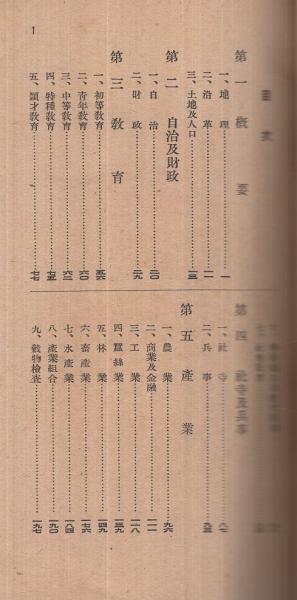 目次
第一 概要
一、地理……一
二、沿革……一一
三、土地及人口……一三
第二 自治及財政
一、自治……二〇
二、財政……二九
第三 教育
一、初等教育……五六
二、青年教育……六〇
三、中等教育……六三
四、特種教育……七五
五、頴才教育……七七
第四 社寺及兵事
一、社寺……八七
二、兵事……九三
第五 產業
一、農業……九六
二、商業及金融……一一一
三、工業……一一八
四、蠶絲業……一三九
五、林業……一四九
六、畜產業……一七六
七、水產業……一八四
八、產業組合……一九〇
九、穀物檢査……一九七
1